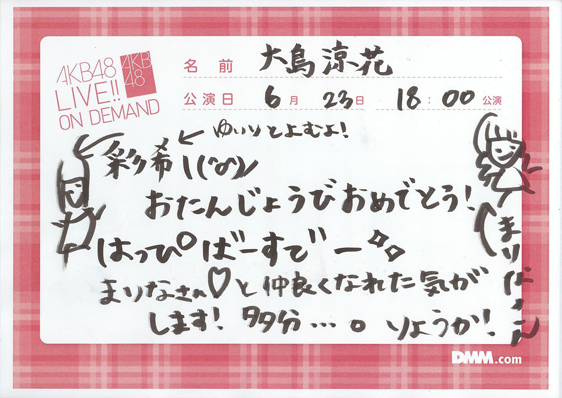 AKB48
LIVE!!
ON DEMAND
AKB
48
名前 大島涼花
公演日 6月23日 18:00 公演
←ゆいりとよむよ!
彩希\(^o^)/
おたんじょうびおめでとう!
はっぴーばーすでー
まりなさん♡と仲良くなれた気が
します! 多分…。りょうか!
DMM.com